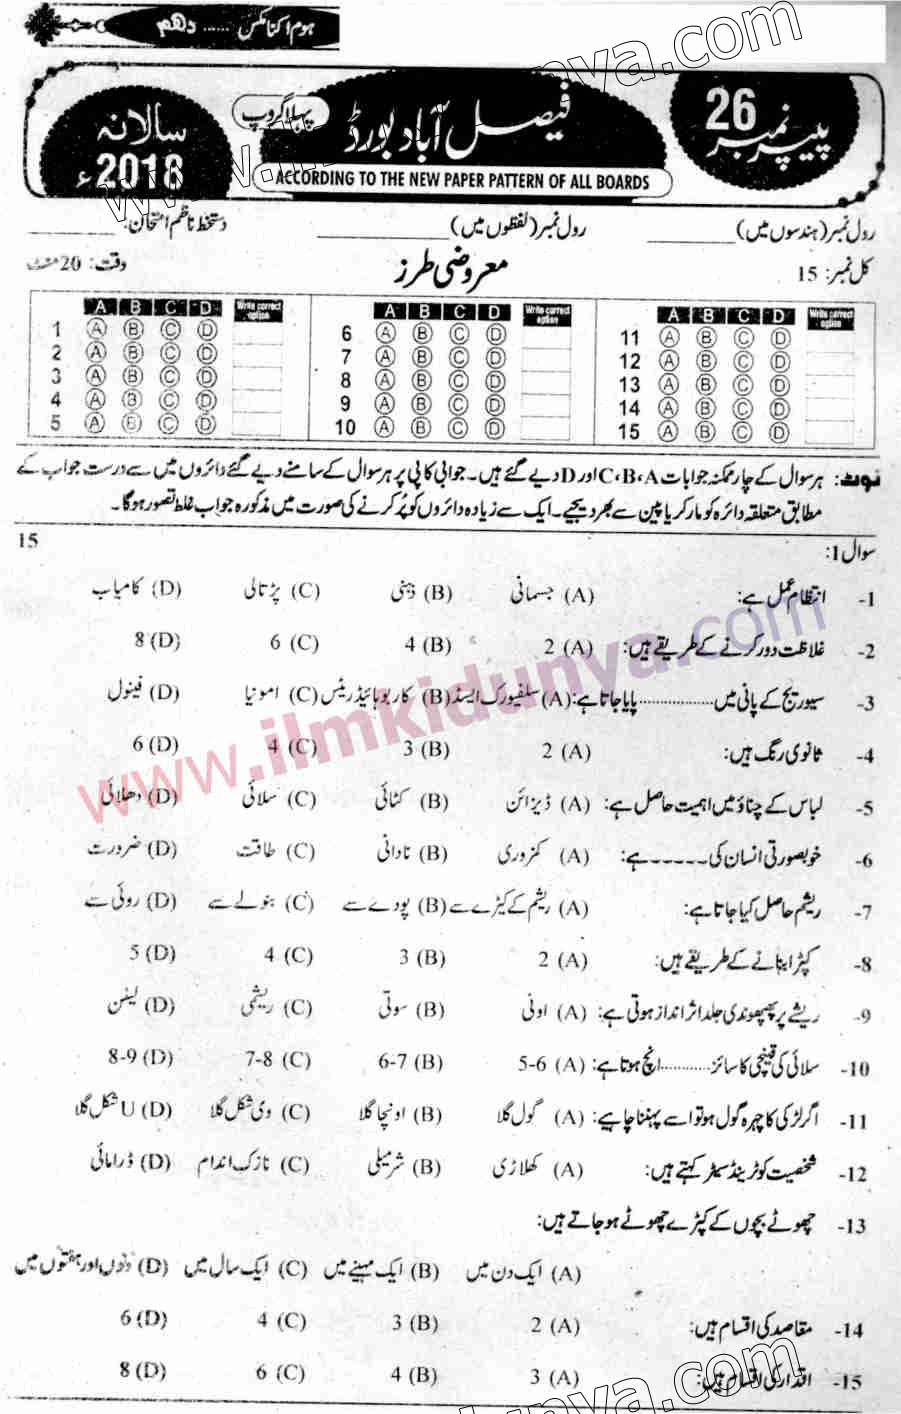 ہوم اکنامکس ...... دہم
پیپر نمبر 26
فیصل آباد بورڈ
پہلا گروپ
سالانہ 2018ء
ACCORDING TO THE NEW PAPER PATTERN OF ALL BOARDS
رول نمبر (ہندسوں میں) ________ رول نمبر (لفظوں میں) ________ دستخط ناظم امتحان: ________
کل نمبر: 15 معروضی طرز وقت: 20 منٹ
A B C D Write correct option A B C D Write correct option A B C D Write correct option
1 A B C D 6 A B C D 11 A B C D
2 A B C D 7 A B C D 12 A B C D
3 A B C D 8 A B C D 13 A B C D
4 A B C D 9 A B C D 14 A B C D
5 A B C D 10 A B C D 15 A B C D
نوٹ: ہر سوال کے چار ممکنہ جوابات C،B،A اور D دیے گئے ہیں۔ جوابی کاپی پر ہر سوال کے سامنے دیے گئے دائروں میں سے درست جواب کے
مطابق متعلقہ دائرہ کو مارکر یا پین سے بھر دیجیے۔ ایک سے زیادہ دائروں کو پُر کرنے کی صورت میں مذکورہ جواب غلط تصور ہوگا۔
سوال 1: 15
1- انتظام عمل ہے: (A) جسمانی (B) ذہنی (C) پڑتالی (D) کامیاب
2- غلاظت دور کرنے کے طریقے ہیں: (A) 2 (B) 4 (C) 6 (D) 8
3- سیوریج کے پانی میں .................. پایا جاتا ہے: (A) سلفیورک ایسڈ (B) کاربوہائیڈریٹس (C) امونیا (D) فینول
4- ثانوی رنگ ہیں: (A) 2 (B) 3 (C) 4 (D) 6
5- لباس کے چناؤ میں اہمیت حاصل ہے: (A) ڈیزائن (B) کٹائی (C) سلائی (D) دھلائی
6- خوبصورتی انسان کی ------ ہے: (A) کمزوری (B) نادانی (C) طاقت (D) ضرورت
7- ریشم حاصل کیا جاتا ہے: (A) ریشم کے کیڑے سے (B) پودے سے (C) بنولے سے (D) روئی سے
8- کپڑا بنانے کے طریقے ہیں: (A) 2 (B) 3 (C) 4 (D) 5
9- ریشے پر پھپھوندی جلد اثر انداز ہوتی ہے: (A) اونی (B) سوتی (C) ریشمی (D) لینن
10- سلائی کی قینچی کا سائز ............ انچ ہوتا ہے: (A) 5-6 (B) 6-7 (C) 7-8 (D) 8-9
11- اگر لڑکی کا چہرہ گول ہو تو اسے پہننا چاہیے: (A) گول گلا (B) اونچا گلا (C) وی شکل گلا (D) U شکل گلا
12- شخصیت کو ٹرینڈ سیٹر کہتے ہیں: (A) کھلاڑی (B) شرمیلی (C) نازک اندام (D) ڈرامائی
13- چھوٹے بچوں کے کپڑے چھوٹے ہو جاتے ہیں:
(A) ایک دن میں (B) ایک مہینے میں (C) ایک سال میں (D) دنوں اور ہفتوں میں
14- مقاصد کی اقسام ہیں: (A) 2 (B) 3 (C) 4 (D) 6
15- اقدار کی اقسام ہیں: (A) 3 (B) 4 (C) 6 (D) 8
www.ilmkidunya.com